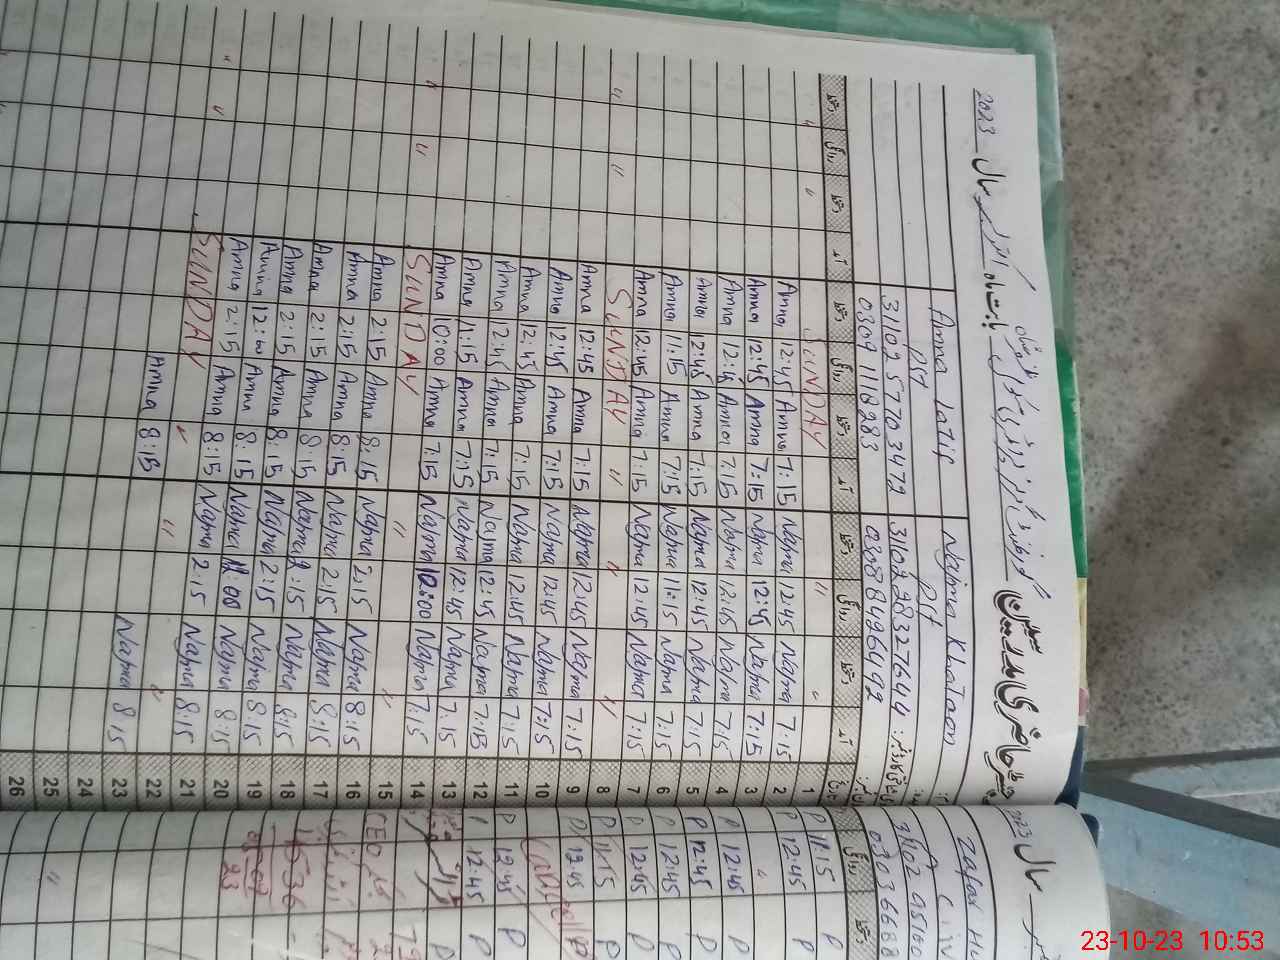 رجسٹر حاضری اساتذہ / معلمین گورنمنٹ گرلز پرائمری سکول بابت ماہ اکتوبر سال 2023
Amna Latif Najma Khatoon
PST PST
31102 5770347 2 31102 2832764 4
0309 1118283 0308 8426492
دستخط روانگی دستخط آمد دستخط روانگی دستخط آمد دستخط روانگی دستخط آمد تاریخ
" " SUNDAY " " 1
Amna 12:45 Amna 7:15 Najma 12:45 Najma 7:15 2
Amna 12:45 Amna 7:15 Najma 12:45 Najma 7:15 3
Amna 12:45 Amna 7:15 Najma 12:45 Najma 7:15 4
Amna 12:45 Amna 7:15 Najma 12:45 Najma 7:15 5
Amna 11:15 Amna 7:15 Najma 11:15 Najma 7:15 6
Amna 12:45 Amna 7:15 Najma 12:45 Najma 7:15 7
" " SUNDAY " " " 8
Amna 12:45 Amna 7:15 Najma 12:45 Najma 7:15 9
Amna 12:45 Amna 7:15 Najma 12:45 Najma 7:15 10
Amna 12:45 Amna 7:15 Najma 12:45 Najma 7:15 11
Amna 12:45 Amna 7:15 Najma 12:45 Najma 7:15 12
Amna 11:15 Amna 7:15 Najma 12:45 Najma 7:15 13
Amna 10:00 Amna 7:15 Najma 10:00 Najma 7:15 14
" " SUNDAY " " 15
Amna 2:15 Amna 8:15 Najma 2:15 Najma 8:15 16
Amna 2:15 Amna 8:15 Najma 2:15 Najma 8:15 17
Amna 2:15 Amna 8:15 Najma 2:15 Najma 8:15 18
Amna 2:15 Amna 8:15 Najma 2:15 Najma 8:15 19
Amna 12:00 Amna 8:15 Najma 12:00 Najma 8:15 20
Amna 2:15 Amna 8:15 Najma 2:15 Najma 8:15 21
" " SUNDAY " " " 22
Amna 8:15 Najma 8:15 23
24
25
26
سال 2023
Zafar
31102 05160
03036688
روانگی دستخط
P 11:15 P
P 12:45 P
"
P 12:45 P
P 12:45 P
P 12:45 P
P 12:45 P
P 11:15 P
P 12:45 P
P 12:45 P
P 12:45 P
CEO
1536
23
23-10-23 10:53